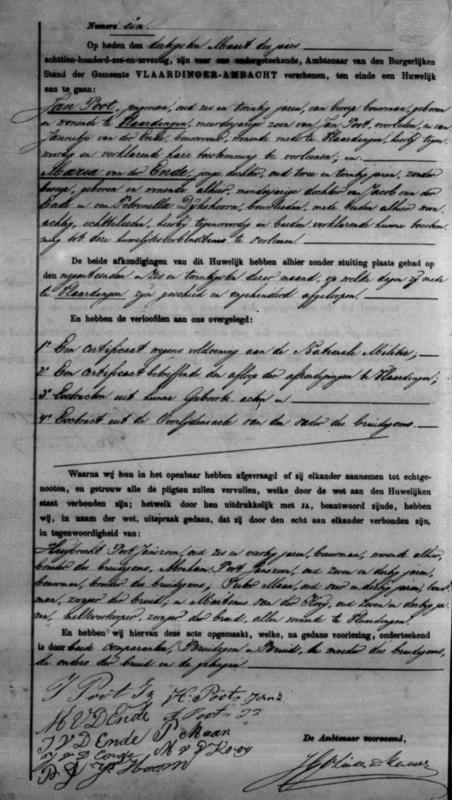 Numero een.
Op heden den dertigsten Maart des jaars
achttien-honderd-zes-en-zeventig, zijn voor ons ondergeteekende, Ambtenaar van den Burgerlijken
Stand der Gemeente VLAARDINGER-AMBACHT verschenen, ten einde een Huwelijk
aan te gaan:
Jan Poot, jongman, oud zes en twintig jaren, van beroep bouwman, geboren
en wonende te Vlaardingen, meerderjarige zoon van Jan Poot, overleden, en van
Jannetje van der Ende, bouwvrouw, wonende mede te Vlaardingen, hierbij tegen
woordig en verklarende hare toestemming te verleenen, en
Maria van der Ende, jonge dochter, oud twee en twintig jaren, zonder
beroep, geboren en wonende alhier, meerderjarige dochter van Jacob van der
Ende en van Pieternella Dijkshoorn, bouwlieden, mede beiden alhier woon
achtig, echtelieden, hierbij tegenwoordig en beiden verklarende hunne toestem
ming tot deze huwelijksverbindtenis te verleenen.
De beide afkondigingen van dit Huwelijk hebben alhier zonder stuiting plaats gehad op
den negentienden en zes en twintigsten dezer maand, op welke dagen zij mede
te Vlaardingen zijn geschied en ongehinderd afgeloopen.
En hebben de verloofden aan ons overgelegd:
1º Een certificaat wegens voldoening aan de Nationale Militie;
2º Een certificaat betreffende den afloop der afkondigingen te Vlaardingen;
3º Extracten uit hunne Geboorte acten en
4º Extract uit de Overlijdensacte van den vader des bruidegoms.
Waarna wij hun in het openbaar hebben afgevraagd of zij elkander aannemen tot echtge-
nooten, en getrouw alle de pligten zullen vervullen, welke door de wet aan den Huwelijken
staat verbonden zijn; hetwelk door hen uitdrukkelijk met JA, beantwoord zijnde, hebben
wij, in naam der wet, uitspraak gedaan, dat zij door den echt aan elkander verbonden zijn,
in tegenwoordigheid van:
Huijbrecht Poot Janszoon, oud zes en veertig jaren, bouwman, wonende alhier,
broeder des bruidegoms, Abraham Poot Janszoon, oud zeven en dertig jaren,
bouwman, broeder des bruidegoms; Pieter Maan, oud vier en dertig jaren, bouw
man, zwager der bruid; en Marthinus van der Kooij, oud zeven en dertig ja
ren, zwager der bruid, allen wonende te Vlaardingen.
En hebben wij hiervan deze acte opgemaakt, welke, na gedane voorlezing, onderteekend
is door beide Comparanten, Bruidegom en Bruid, de moeder des bruidegoms,
de ouders der bruid en de getuigen.
J Poot Jz H. Poot Janz
M V D Ende A Poot Jz
J V D Ende P Maan
J v D Ende M v D Kooy
P D Hoorn
De Ambtenaar voornoemd,